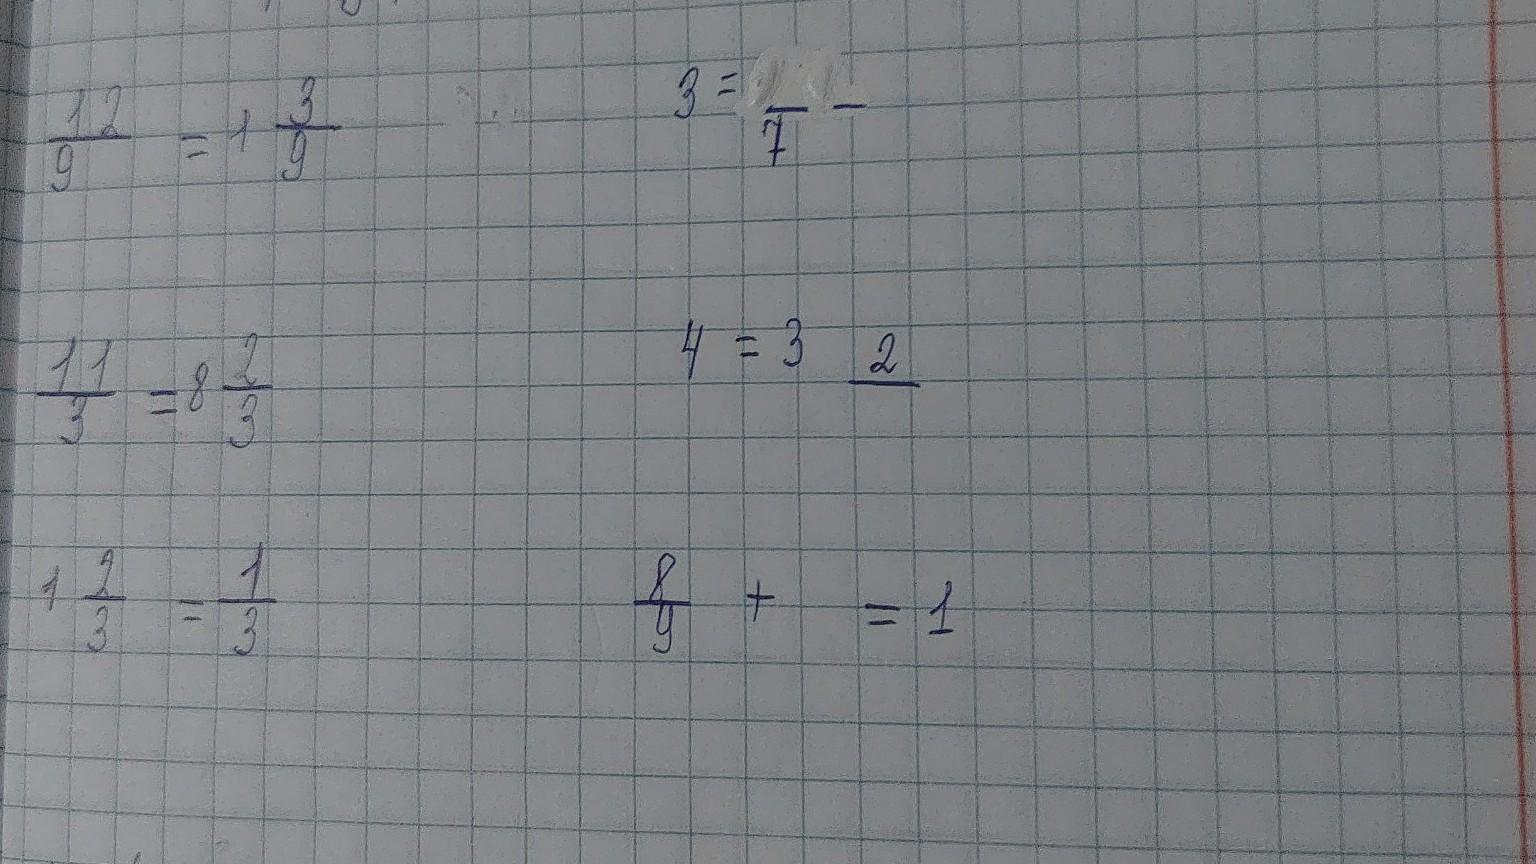 12/9 = 1 3/9
3 = _/7 _
11/3 = 8 2/3
4 = 3 2/
1 2/3 = 1/3
8/9 + = 1